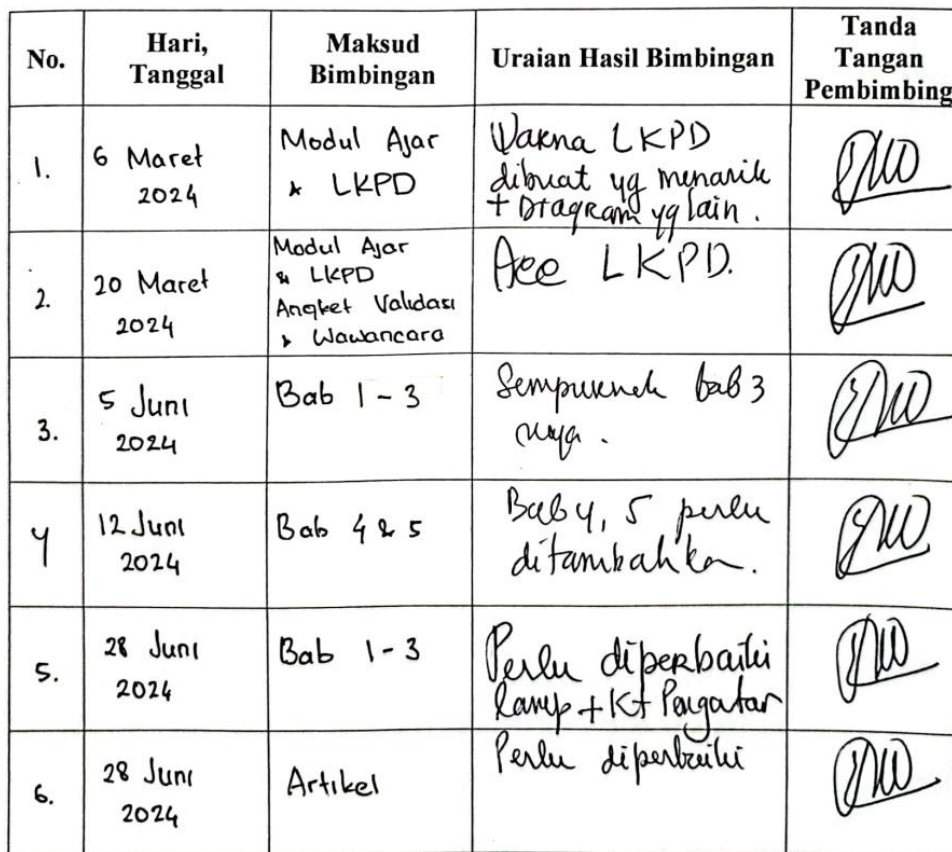 No.
Hari,
Tanggal
Maksud
Bimbingan
Uraian Hasil Bimbingan
Tanda
Tangan
Pembimbing
1.
6 Maret
2024
Modul Ajar
& LKPD
Warna LKPD
dibuat yg menarik
+ Diagram yg lain.
2.
20 Maret
2024
Modul Ajar
& LKPD
Angket Validasi
& Wawancara
Acc LKPD.
3.
5 Juni
2024
Bab 1 - 3
Sempurnak bab 3
nya.
4
12 Juni
2024
Bab 4 & 5
Bab 4, 5 perlu
ditambahkan.
5.
28 Juni
2024
Bab 1 - 3
Perlu diperbaiki
Lamp + Kt Pengatar
6.
28 Juni
2024
Artikel
Perlu diperbaiki